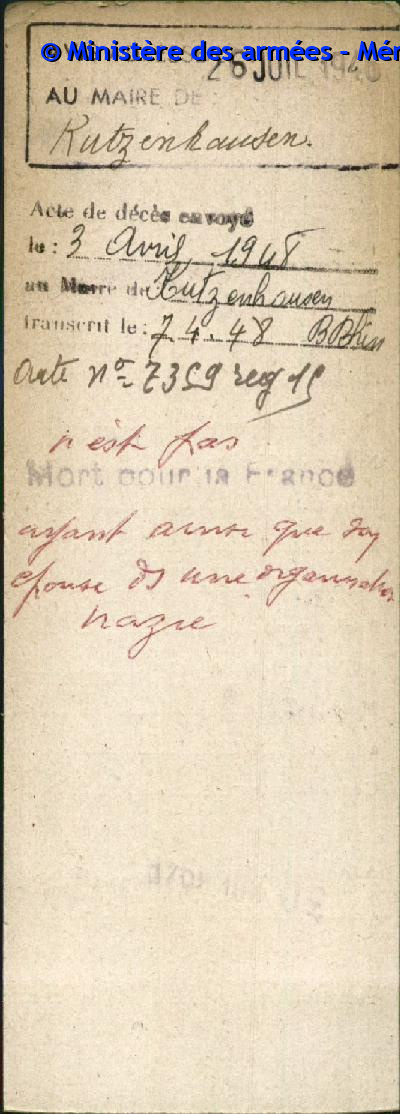 © Ministère des armées - Mém
26 JUIL 1948
AU MAIRE DE
Kutzenhausen.
Acte de décès envoyé
le : 3 Avril 1948
au Maire de Kutzenhausen
transcrit le : 7.4.48 BRhin
Acte n° 7359 reg 15
n'est pas
Mort pour la France
ayant ainsi que son
épouse ds une organisation
nazie